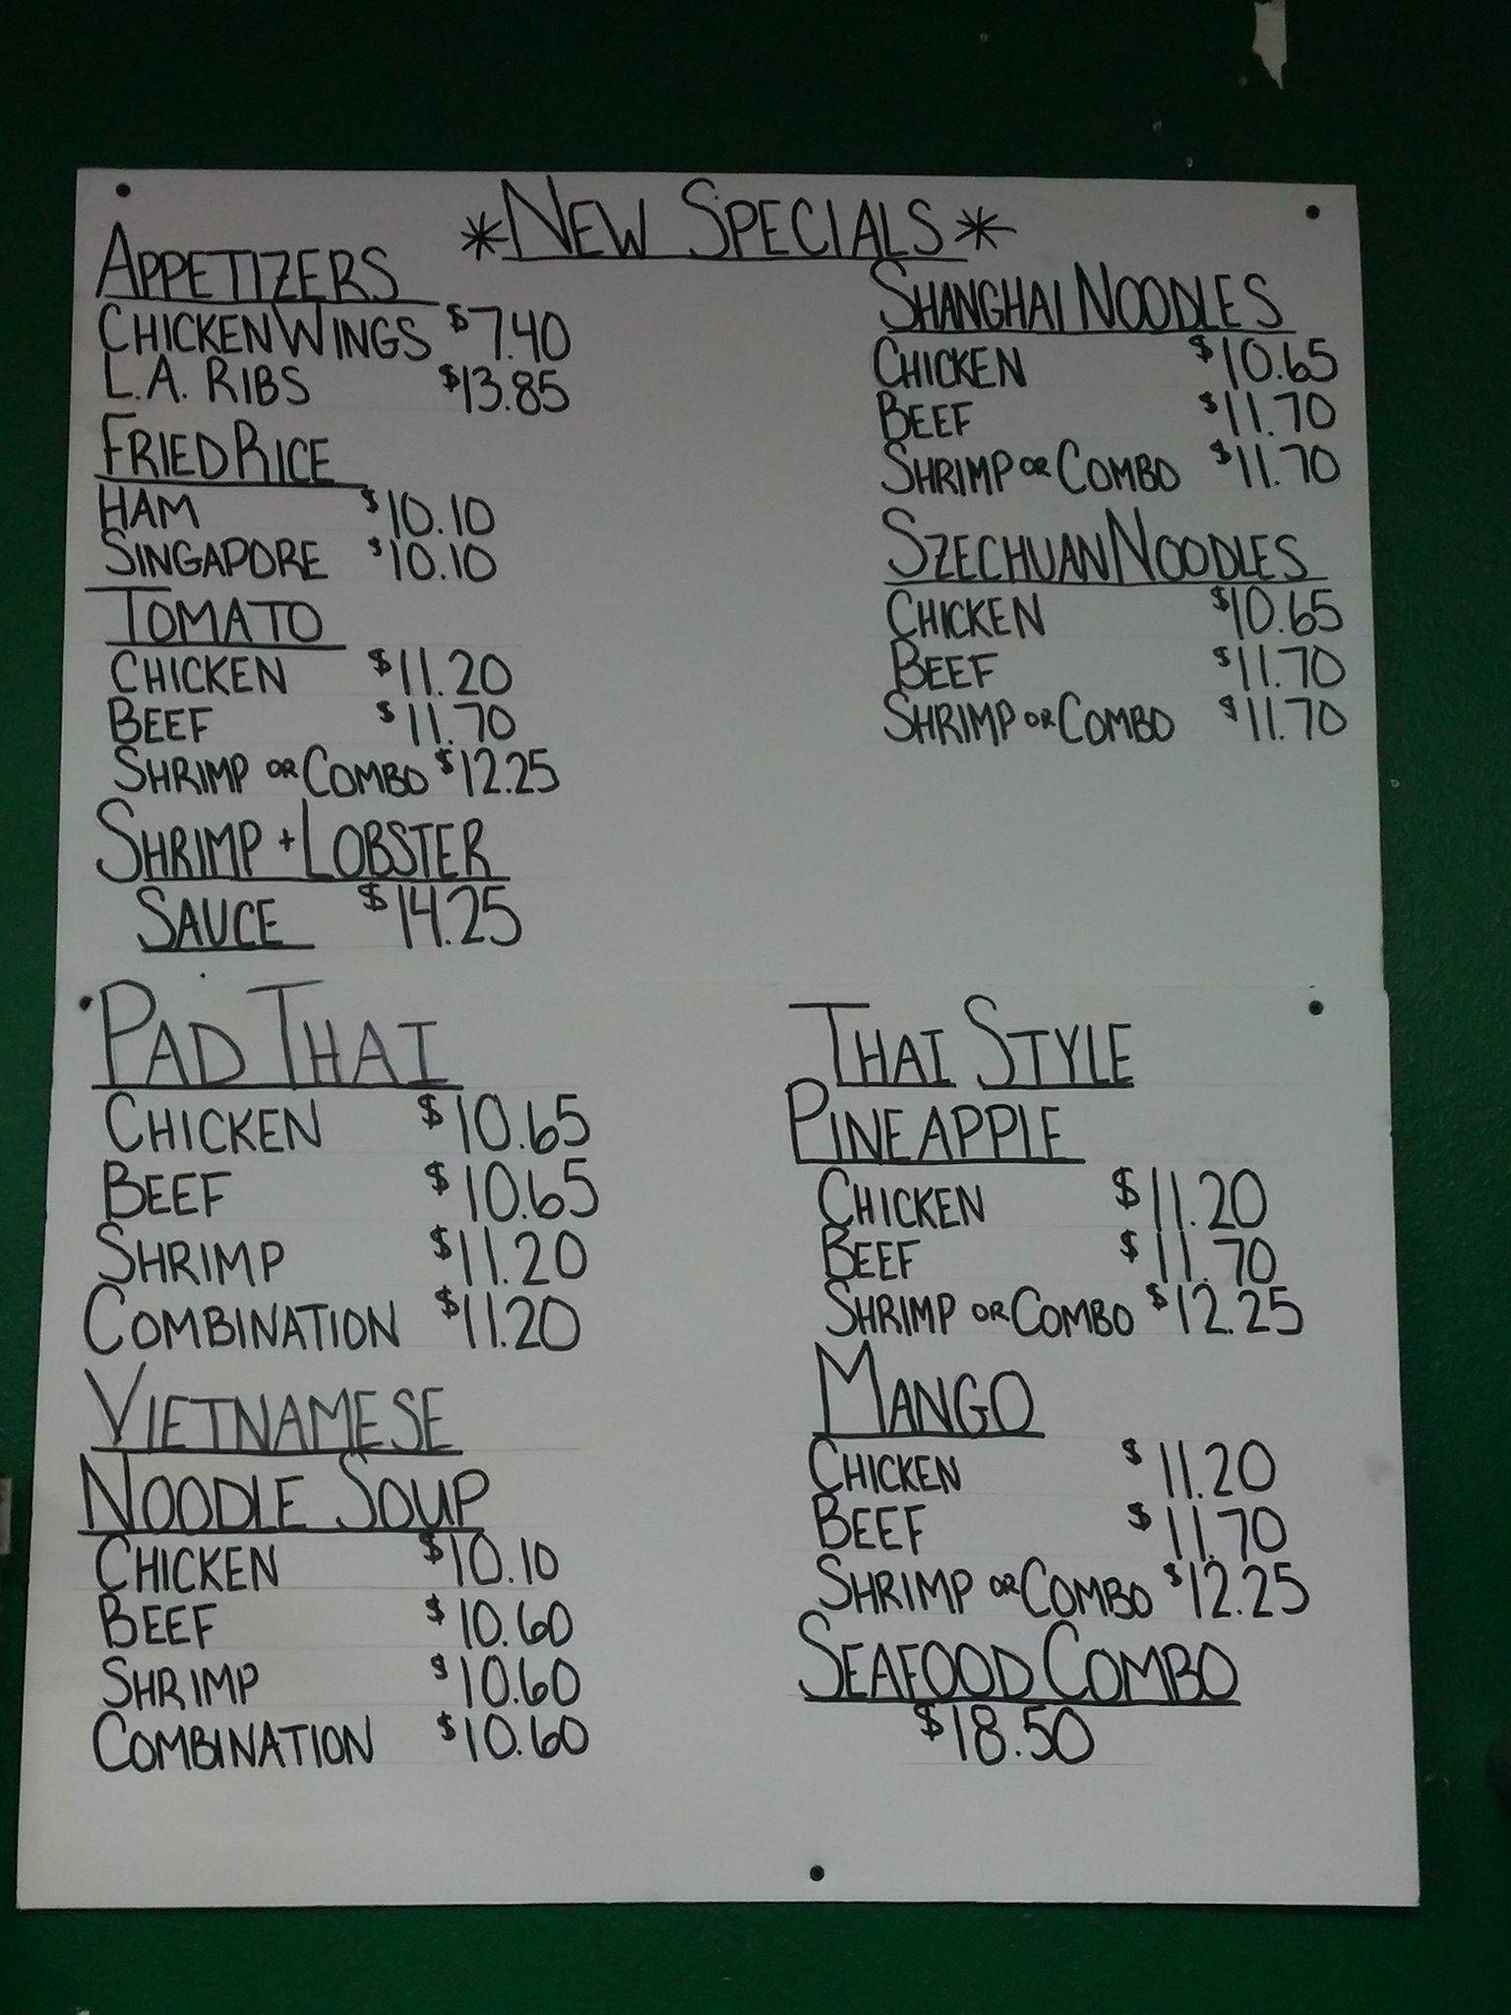 *NEW SPECIALS*
APPETIZERS
CHICKEN WINGS $7.40
L.A. RIBS $13.85
FRIED RICE
HAM $10.10
SINGAPORE $10.10
TOMATO
CHICKEN $11.20
BEEF $11.70
SHRIMP OR COMBO $12.25
SHRIMP + LOBSTER
SAUCE $14.25
SHANGHAI NOODLES
CHICKEN $10.65
BEEF $11.70
SHRIMP OR COMBO $11.70
SZECHUAN NOODLES
CHICKEN $10.65
BEEF $11.70
SHRIMP OR COMBO $11.70
PAD THAI
CHICKEN $10.65
BEEF $10.65
SHRIMP $11.20
COMBINATION $11.20
VIETNAMESE
NOODLE SOUP
CHICKEN $10.10
BEEF $10.60
SHRIMP $10.60
COMBINATION $10.60
THAI STYLE
PINEAPPLE
CHICKEN $11.20
BEEF $11.70
SHRIMP OR COMBO $12.25
MANGO
CHICKEN $11.20
BEEF $11.70
SHRIMP OR COMBO $12.25
SEAFOOD COMBO
$18.50